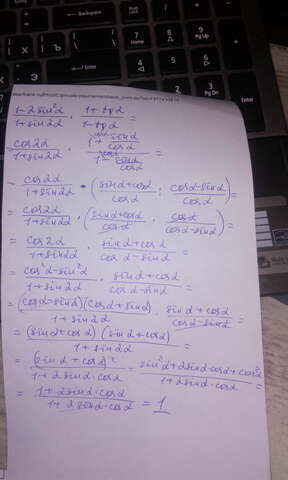 Backspace
Home
End
Enter
(1-2sin²α)/(1+sin2α) · (1+tgα)/(1-tgα) =
= cos2α/(1+sin2α) · (1+sinα/cosα)/(1-sinα/cosα) =
= cos2α/(1+sin2α) · ((sinα+cosα)/cosα : (cosα-sinα)/cosα) =
= cos2α/(1+sin2α) · ((sinα+cosα)/cosα · cosα/(cosα-sinα)) =
= cos2α/(1+sin2α) · (sinα+cosα)/(cosα-sinα) =
= (cos²α-sin²α)/(1+sin2α) · (sinα+cosα)/(cosα-sinα) =
= (cosα-sinα)(cosα+sinα)/(1+sin2α) · (sinα+cosα)/(cosα-sinα) =
= (sinα+cosα)(sinα+cosα)/(1+sin2α) =
= (sinα+cosα)²/(1+2sinα·cosα) = (sin²α+2sinα·cosα+cos²α)/(1+2sinα·cosα) =
= (1+2sinα·cosα)/(1+2sinα·cosα) = 1